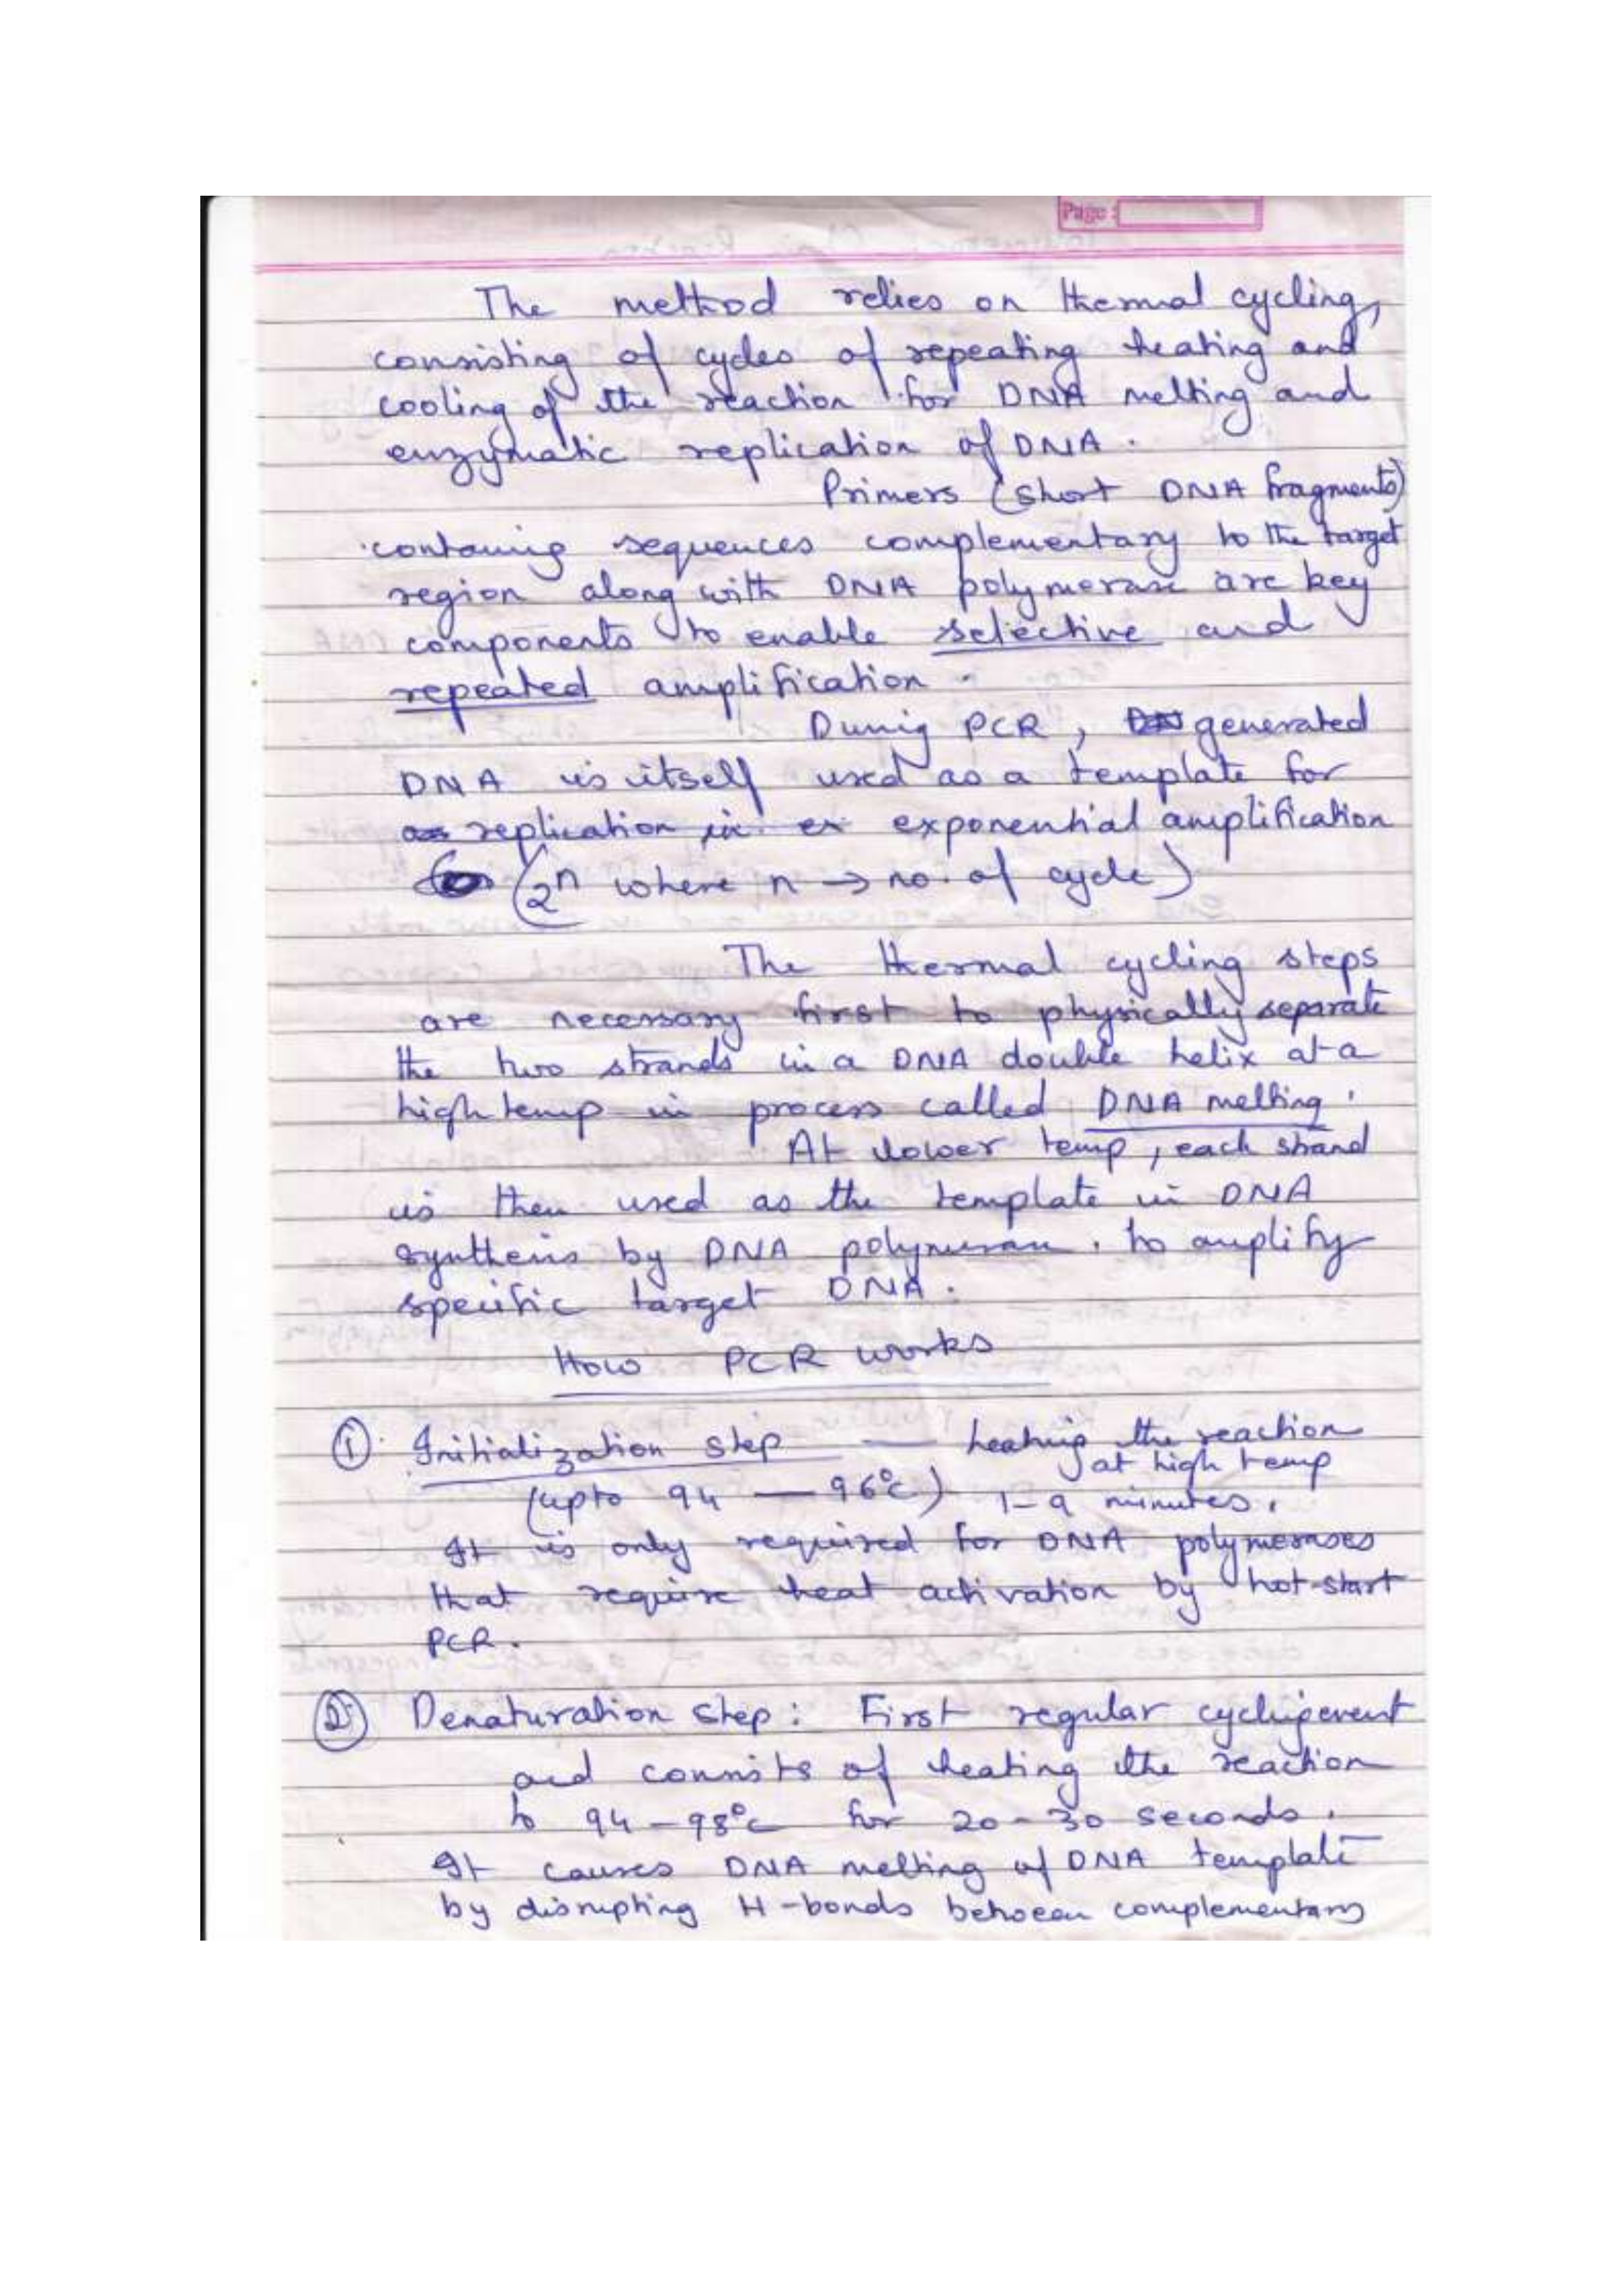 Page :
The method relies on thermal cycling,
consisting of cycles of repeating heating and
cooling of the reaction for DNA melting and
enzymatic replication of DNA.
Primers (short DNA fragments)
containing sequences complementary to the target
region along with DNA polymerase are key
components to enable selective and
repeated amplification.
During PCR, generated
DNA is itself used as a template for
as replication in ex exponential amplification
(2^n where n → no. of cycle)
The thermal cycling steps
are necessary first to physically separate
the two strands in a DNA double helix at a
high temp in process called DNA melting.
At lower temp, each strand
is then used as the template in DNA
synthesis by DNA polymerase. to amplify
specific target DNA.
How PCR works
① Initialization step — heating the reaction
at high temp
(upto 94 — 96°C) 1-9 minutes.
It is only required for DNA polymerases
that require heat activation by hot-start
PCR.
② Denaturation step: First regular cycling event
and consists of heating the reaction
to 94-98°C for 20-30 seconds.
It causes DNA melting of DNA template
by disrupting H-bonds between complementary